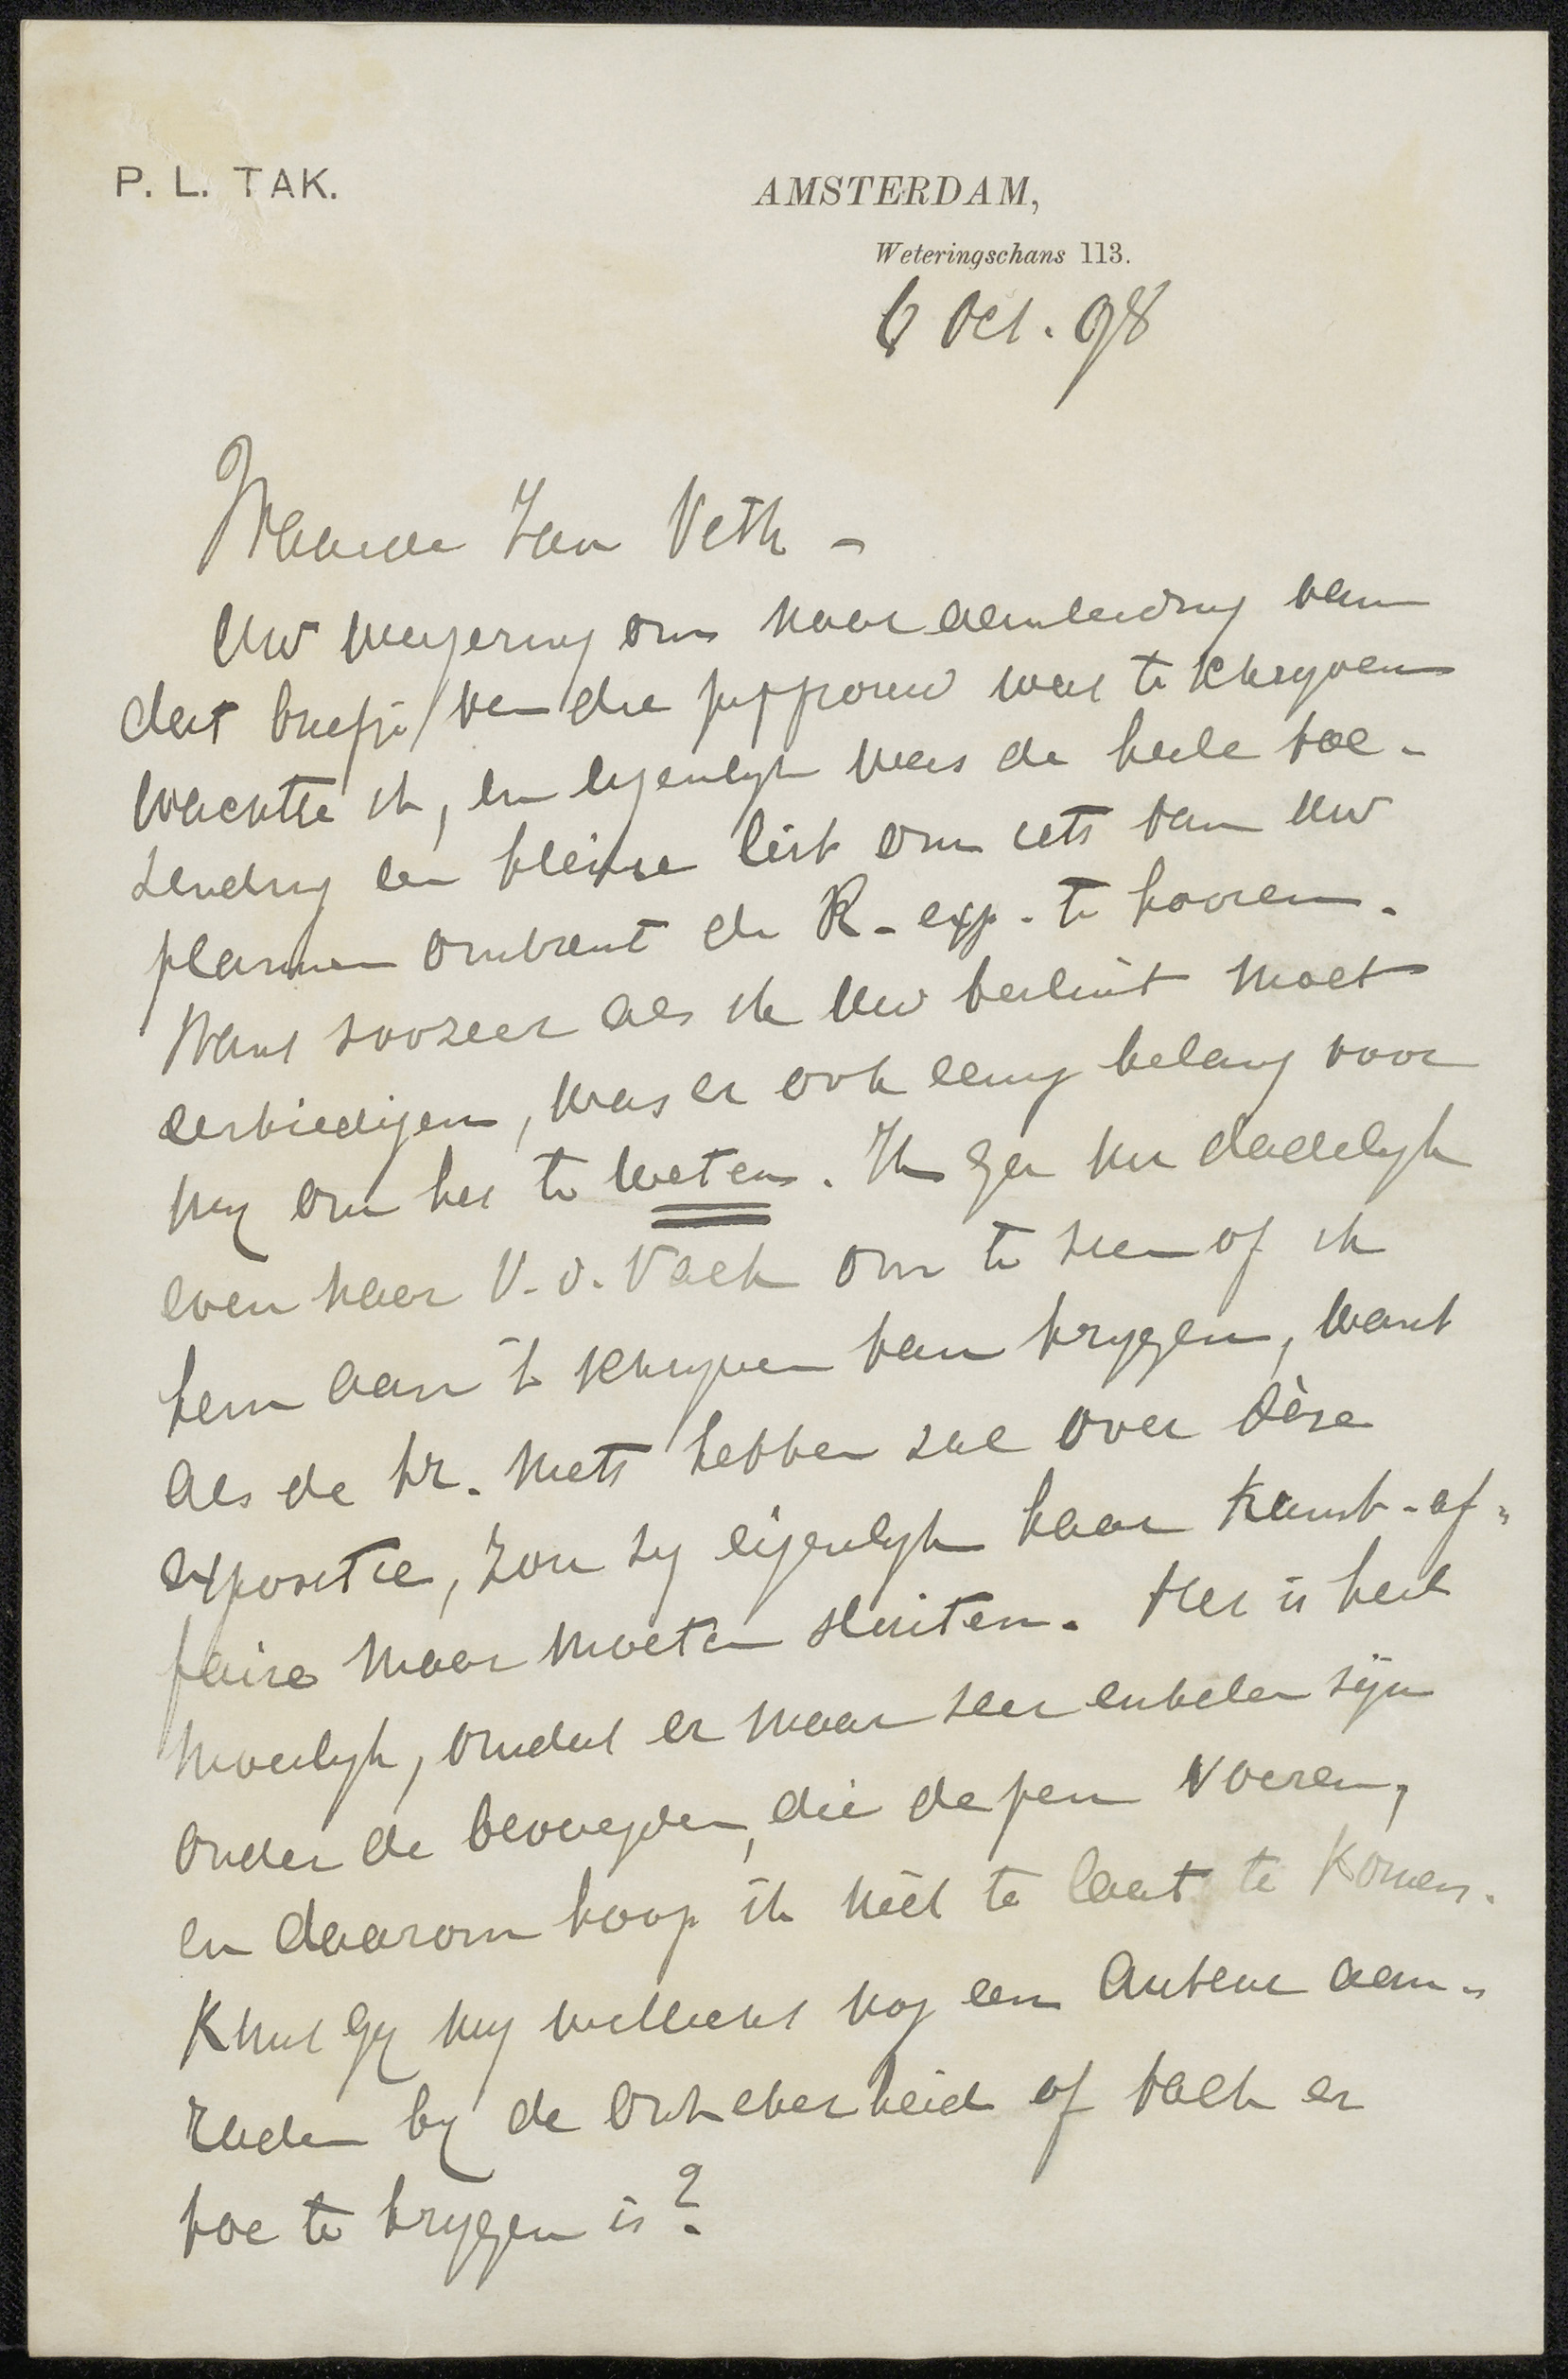 P. L. TAK.
AMSTERDAM,
Weteringschans 113.
6 Oct. 98
Waarde Jan Veth –
Uw weigering om naar aanleiding van
dat briefje van die juffrouw wat te schrijven
wachtte ik, en eigenlijk was de heele toe-
zending een kleine list om iets van Uw
plannen omtrent de R-exp. te hooren.
Want soozeer als ik Uw besluit moet
eerbiedigen, was er ook eenig belang voor
mij om het te weten. Ik ga nu dadelijk
even naar V. d. Valk om te zien of ik
hem aan 't schrijven kan krijgen, want
als de Kr. niets hebben zal over dèze
expositie, zou zij eigenlijk haar kunst-af-
faire maar moeten sluiten. Het is heel
moeilijk, omdat er maar zeer enkelen zijn
onder de bevoegden, die de pen voeren,
en daarom hoop ik niet te laat te komen.
Kunt gij mij wellicht nog een auteur aan-
raden bij de onzekerheid of Valk er
toe te krijgen is?